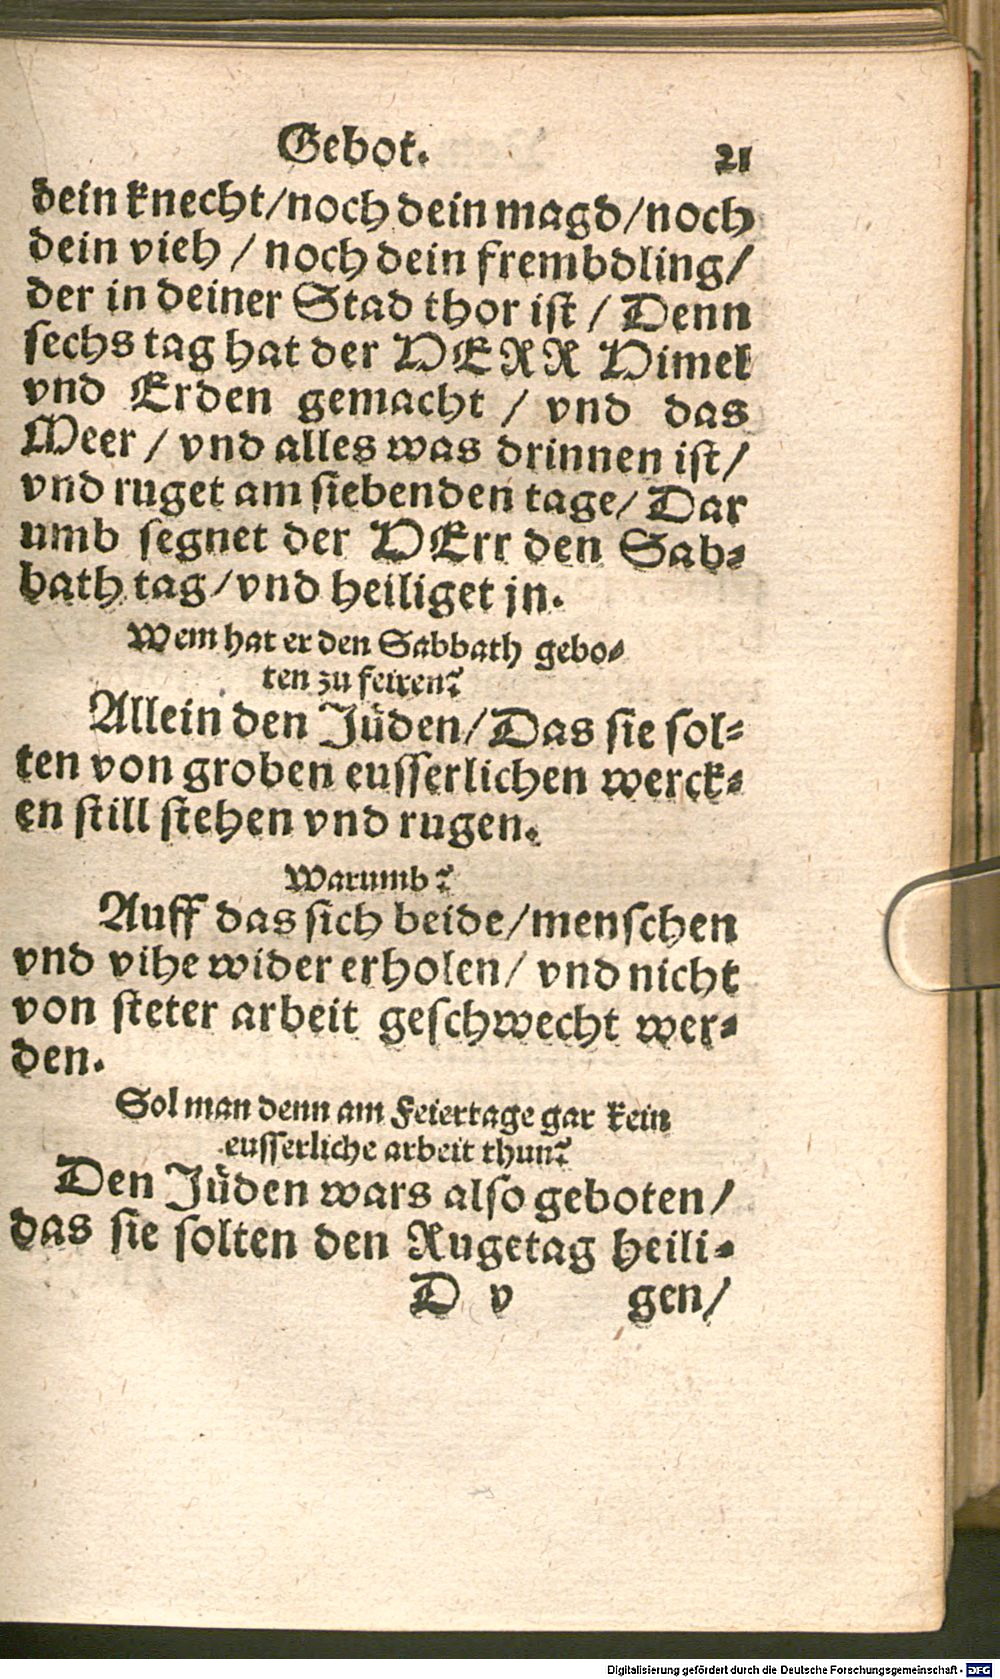 Gebot. 21
dein knecht/noch dein magd/noch
dein vieh / noch dein frembdling/
der in deiner Stad thor ist / Denn
sechs tag hat der HERR Himel
vnd Erden gemacht / vnd das
Meer / vnd alles was drinnen ist/
vnd ruget am siebenden tage/ Dar
umb segnet der HErr den Sab-
bath tag/vnd heiliget jn.
Wem hat er den Sabbath gebo-
ten zu feiren?
Allein den Jüden/Das sie sol-
ten von groben eusserlichen werck-
en still stehen vnd rugen.
Warumb?
Auff das sich beide/menschen
vnd vihe wider erholen/ vnd nicht
von steter arbeit geschwecht wer-
den.
Sol man denn am Feiertage gar kein
eusserliche arbeit thun?
Den Jüden wars also geboten/
das sie solten den Rugetag heili-
D v gen/
Digitalisierung gefördert durch die Deutsche Forschungsgemeinschaft - DFG